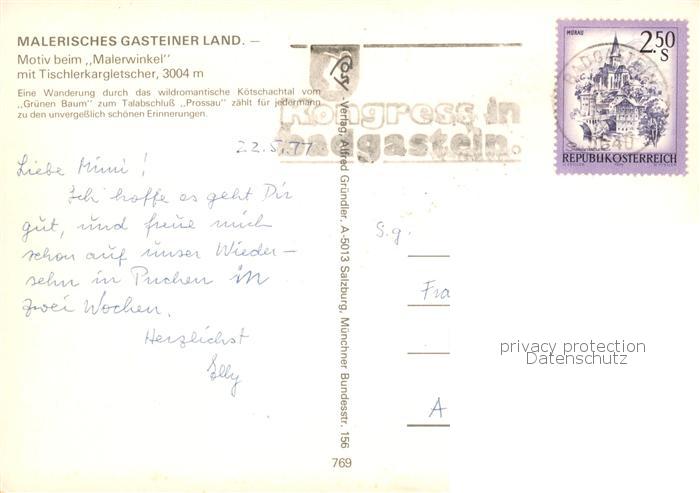 MALERISCHES GASTEINER LAND. —
Motiv beim „Malerwinkel"
mit Tischlerkargletscher, 3004 m
Eine Wanderung durch das wildromantische Kötschachtal vom
„Grünen Baum" zum Talabschluß „Prossau" zählt für jedermann
zu den unvergeßlich schönen Erinnerungen.
22.5.77
Liebe Mimi!
Ich hoffe es geht Dir
gut, und freue mich
schon auf unser Wieder-
sehn in Puchen in
zwei Wochen.
Herzlichst
Elly
Kongress in
badgastein.
Verlag: Alfred Gründler, A-5013 Salzburg, Münchner Bundesstr. 156
769
MURAU
2.50
S
REPUBLIK ÖSTERREICH
BADGASTEIN
5640
S.g.
Fra
A
privacy protection
Datenschutz